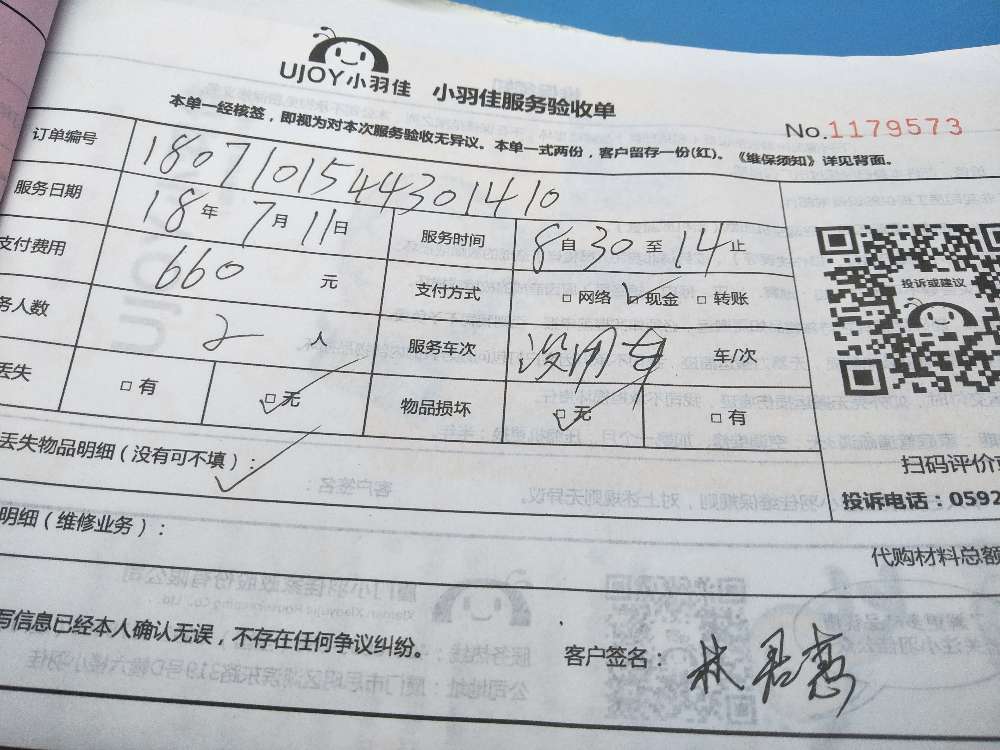 UJOY小羽佳 小羽佳服务验收单
本单一经核签，即视为对本次服务验收无异议。本单一式两份，客户留存一份(红)。《维保须知》详见背面。
No.1179573
订单编号 1807101544301410
服务日期 18年7月11日 服务时间 8自30至14止
支付费用 660元 支付方式 □网络 □现金 □转账
务人数 2人 服务车次 没用车 车/次
丢失 □有 □无 物品损坏 □无 □有
投诉或建议
扫码评价
丢失物品明细（没有可不填）：
投诉电话：0592
明细（维修业务）：
代购材料总额
写信息已经本人确认无误，不存在任何争议纠纷。
客户签名：林